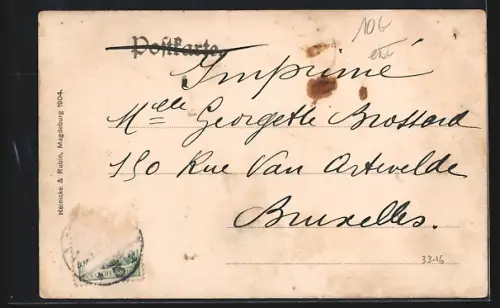 Postkarte
10G
Imprimé
Melle Georgette Brossard
150 Rue Van Artevelde
Bruxelles.
33-16
Reinicke & Rubin, Magdeburg 1904.